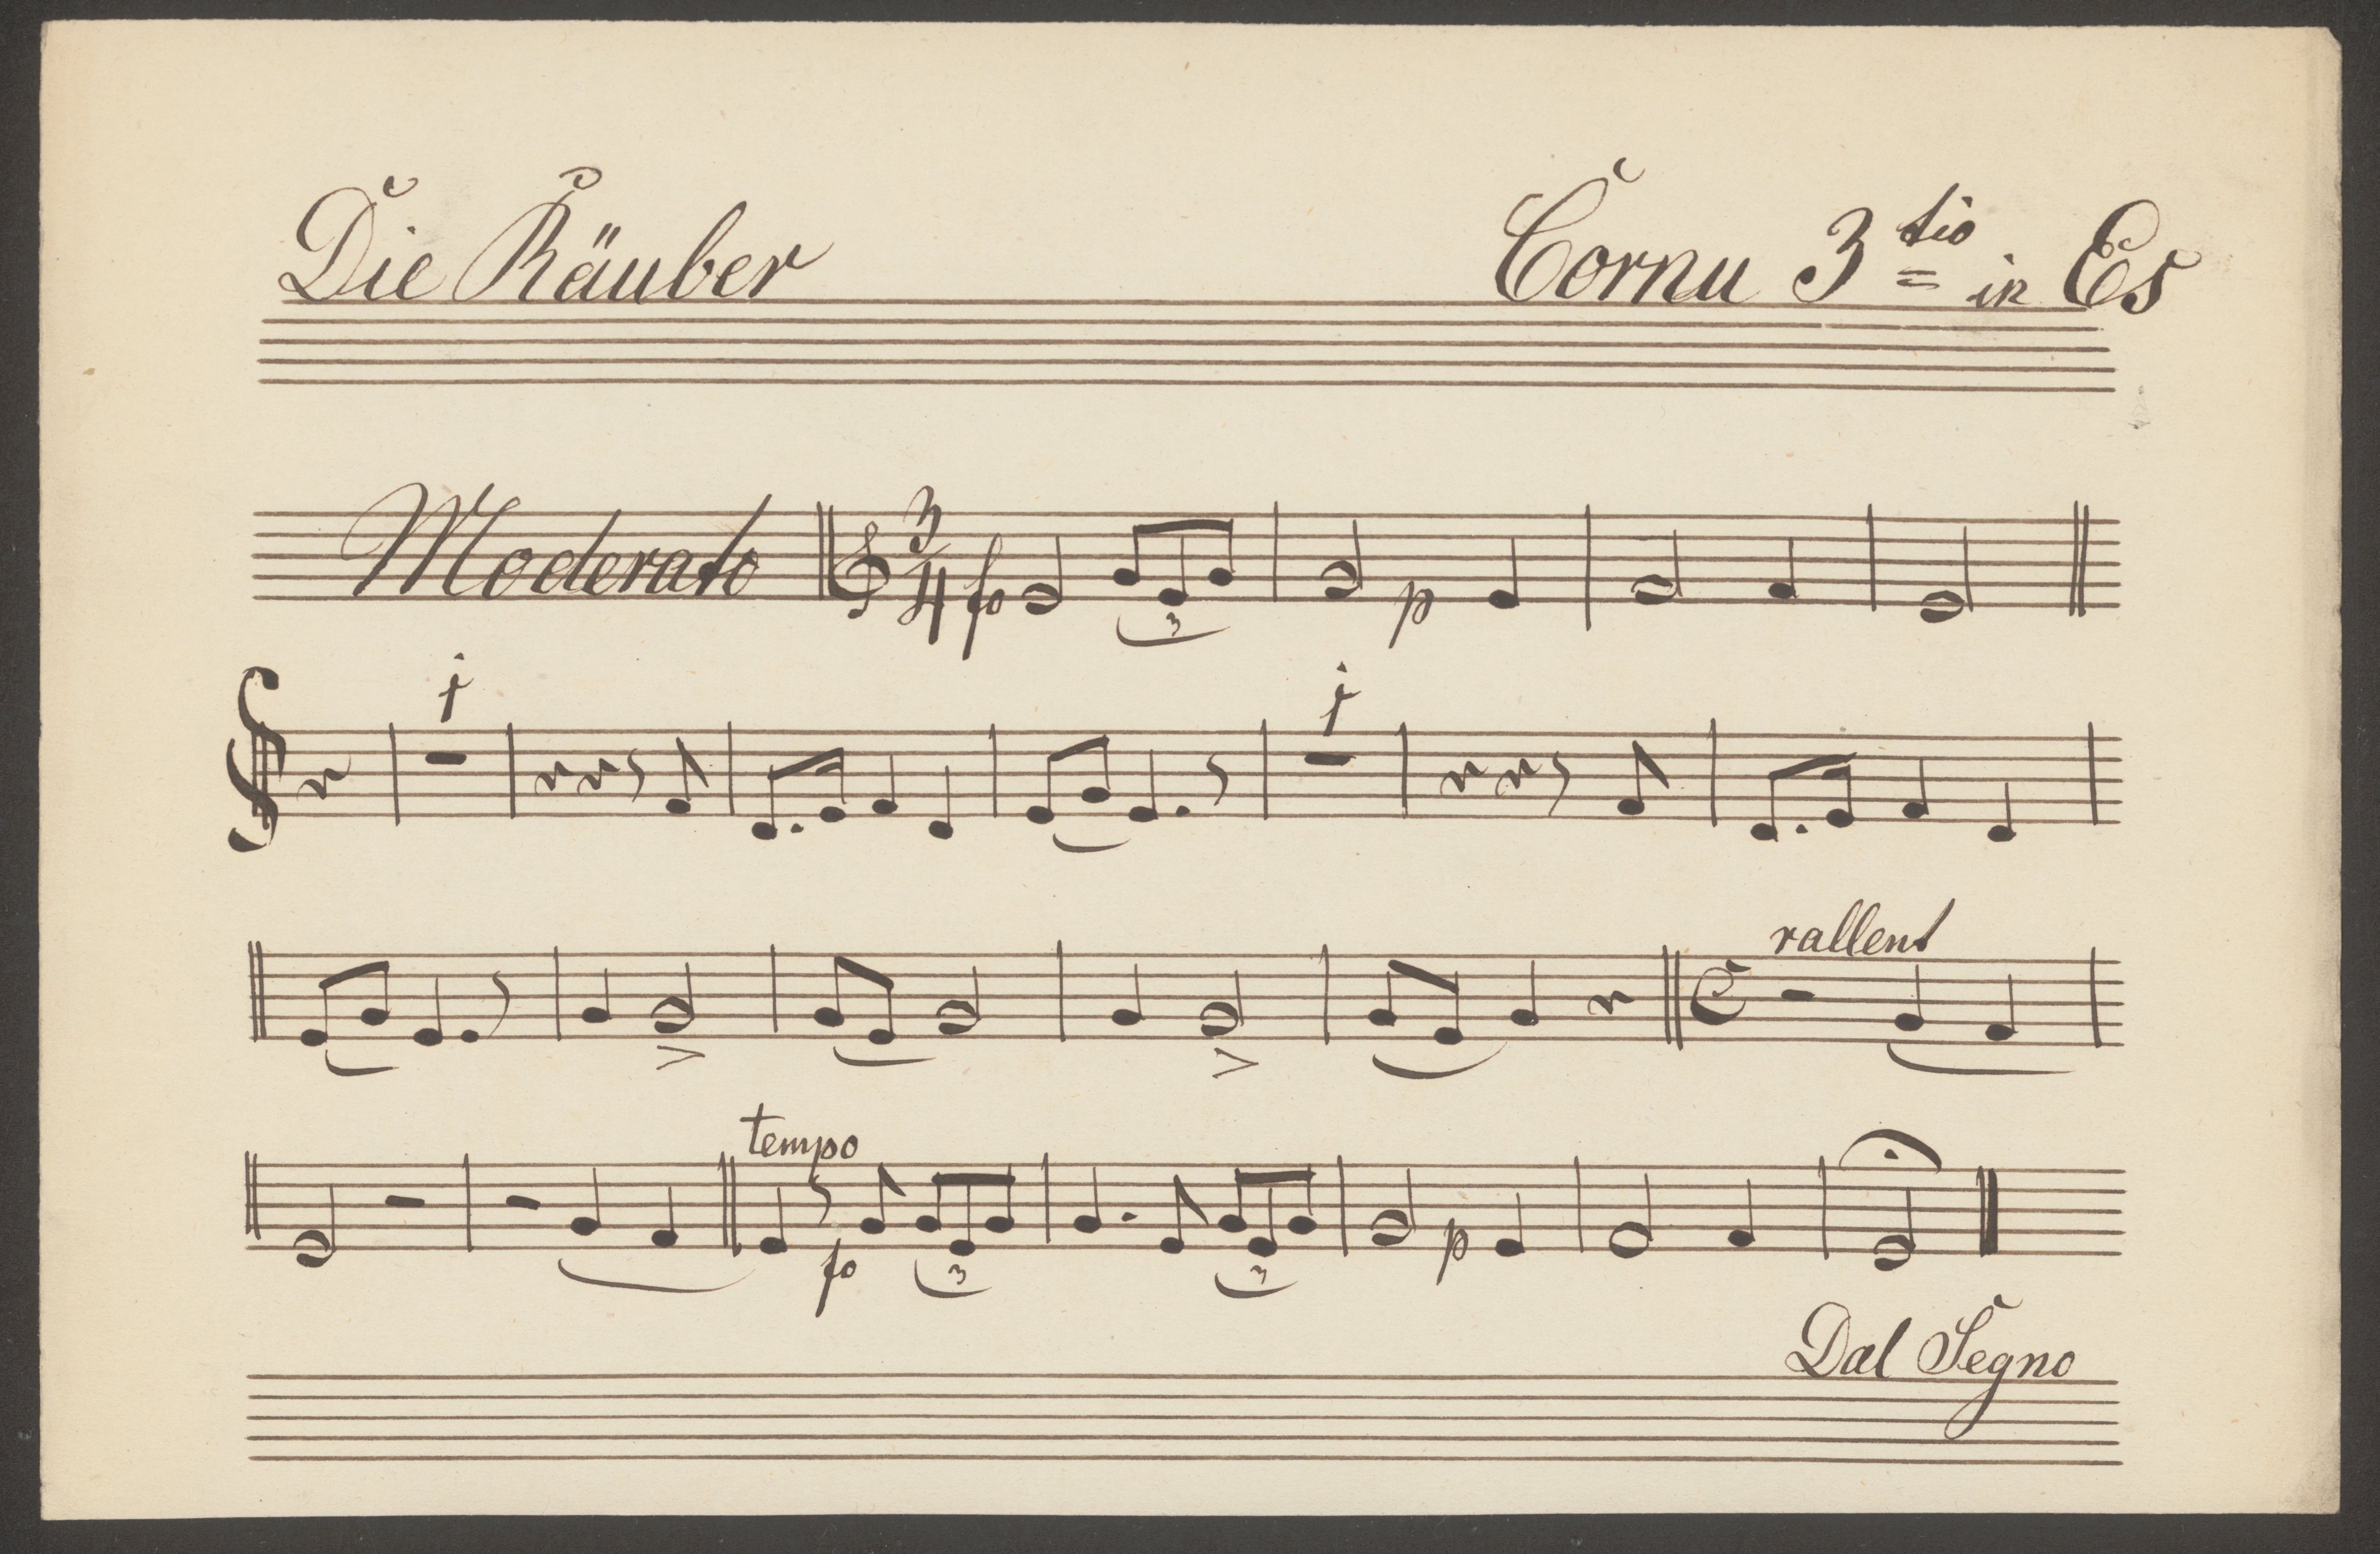 Die Räuber Cornu 3tio in Es
Moderato 3/4 fo 3 p
1 1
rallent
tempo
fo 3 3 p
Dal Segno